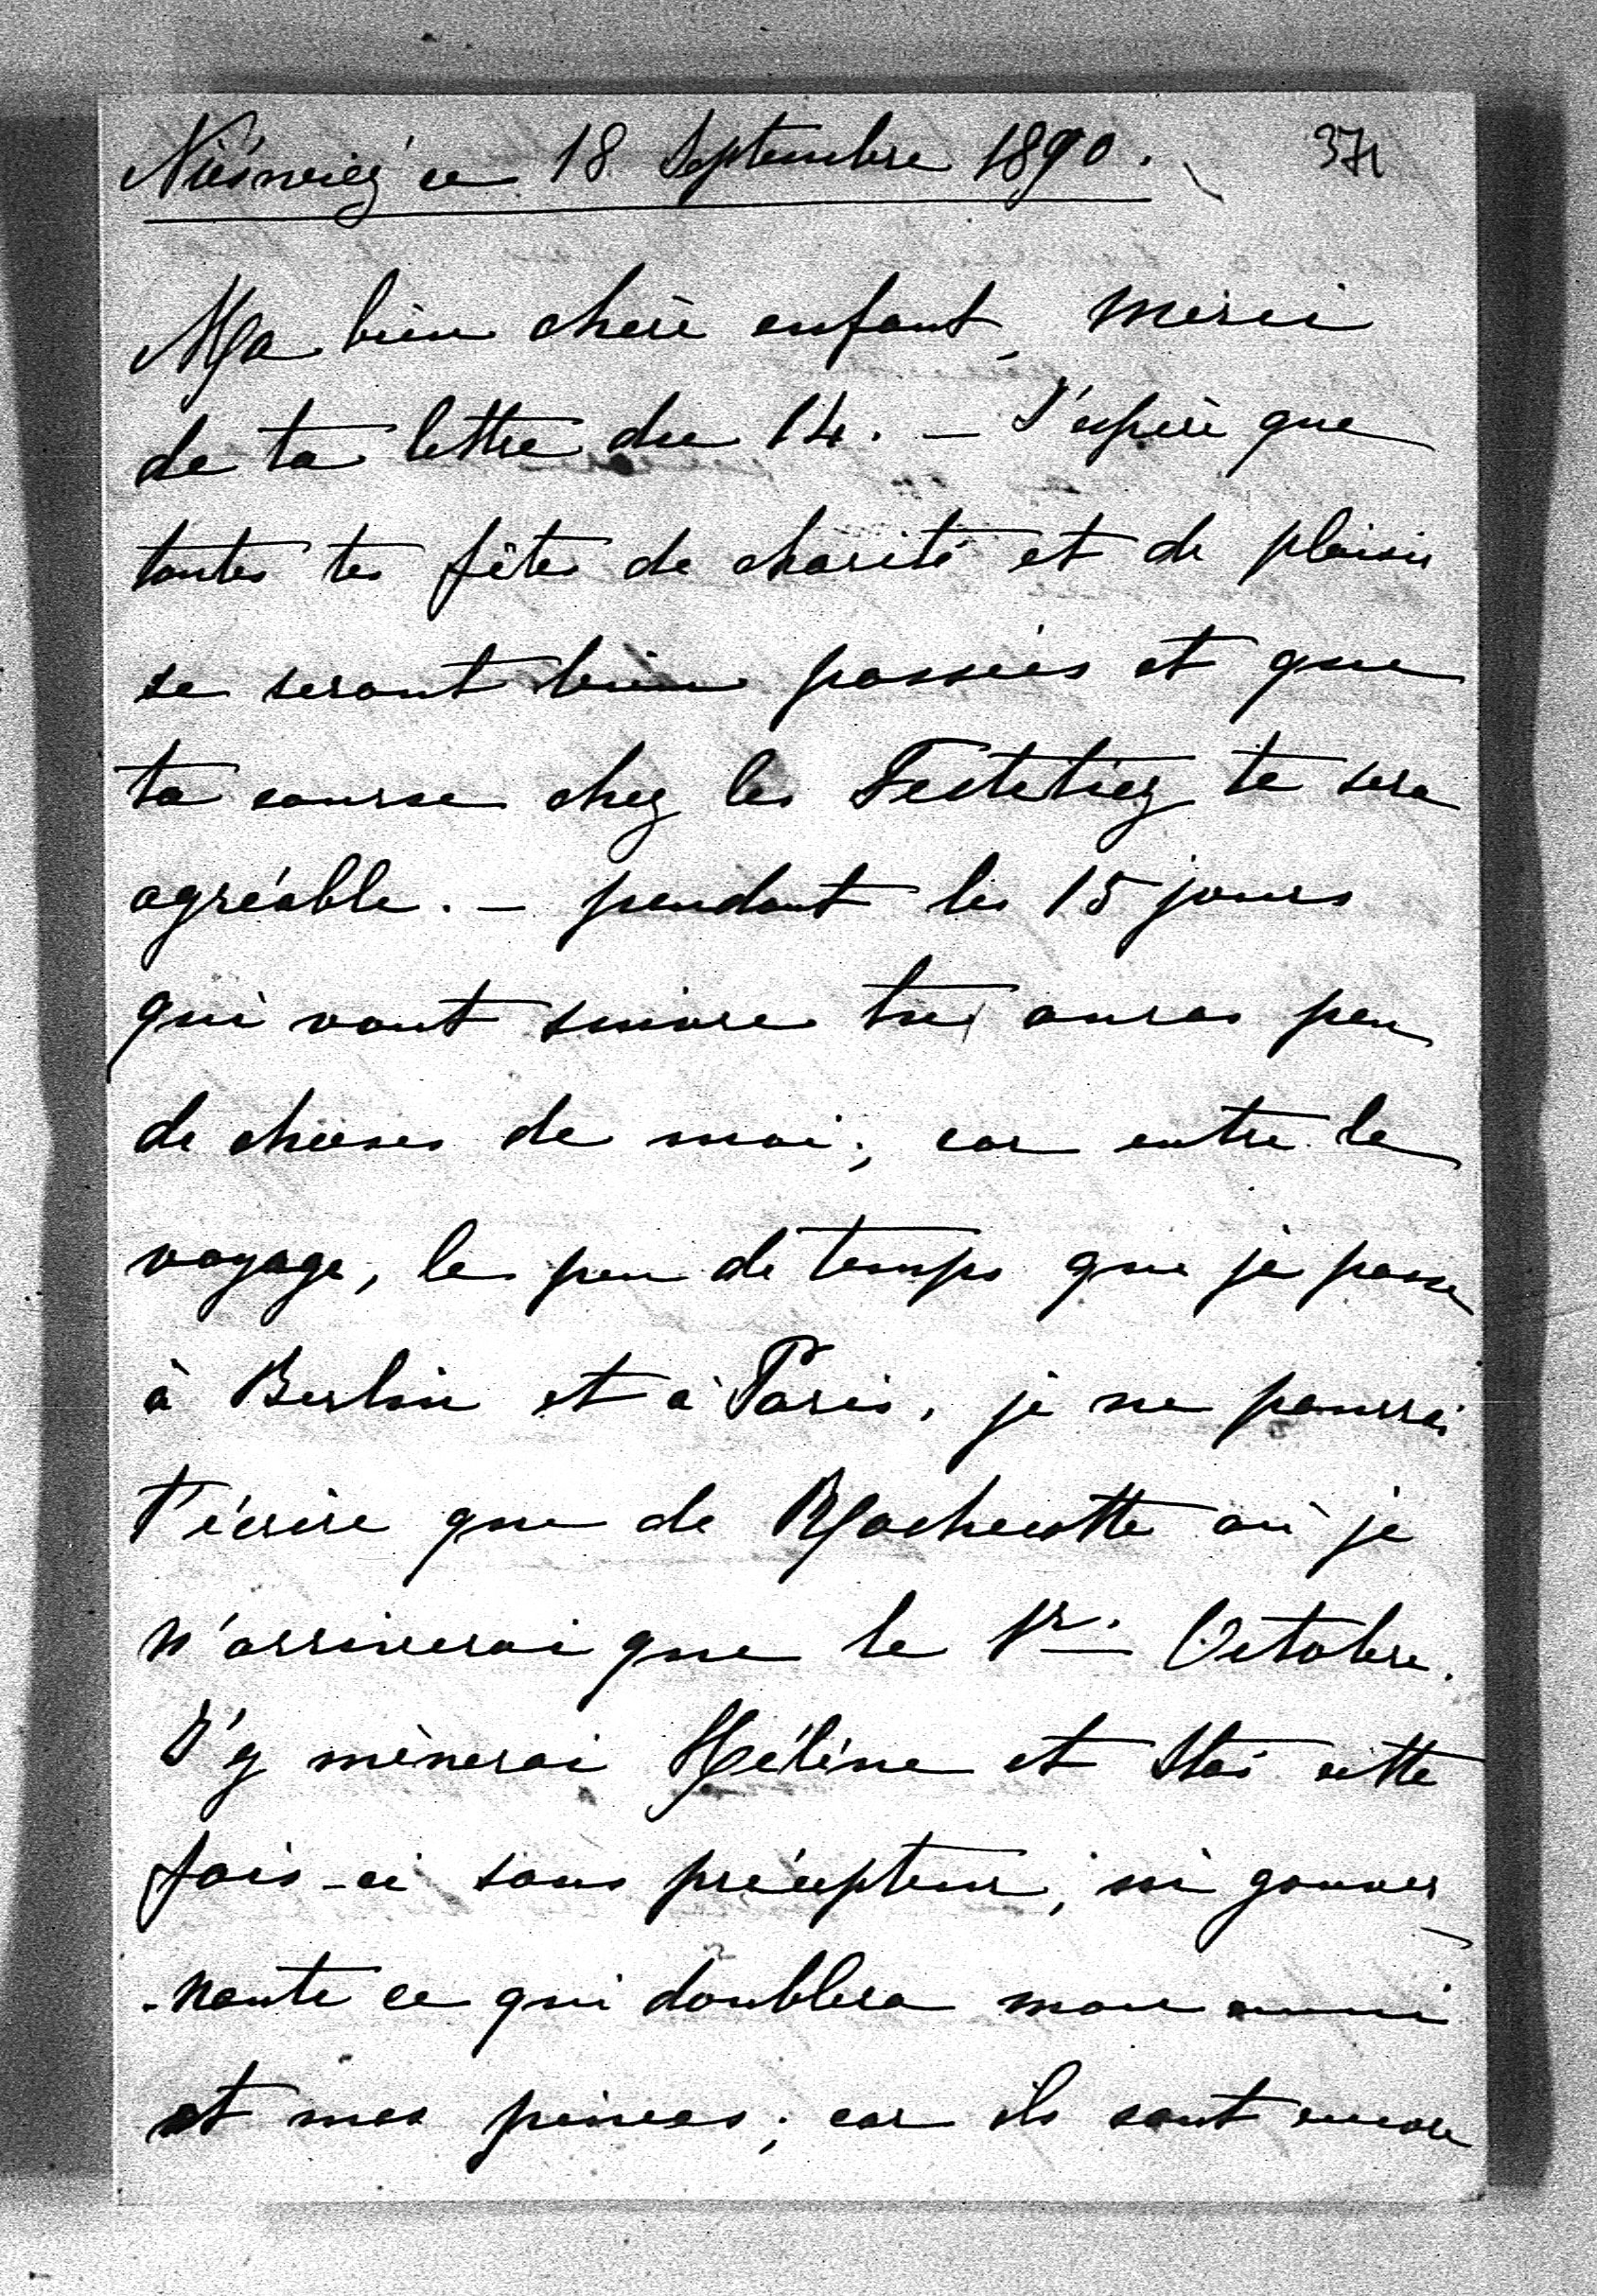 Nieśwież ce 18 Septembre 1890. 371
Ma bien chère enfant, merci
de ta lettre du 14. — J'espère que
toutes tes fêtes de charité et de plaisir
se seront bien passées et que
ta course chez les Festeticz te sera
agréable. — pendant les 15 jours
qui vont suivre tu auras peu
de choses de moi; car entre le
voyage, le peu de temps que je passe
à Berlin et à Paris, je ne pourrai
t'écrire que de Rochecotte où je
n'arriverai que le 1r. Octobre.
J'y mènerai Hélène et Staś cette
fois-ci sans précepteur, ni gouver
-nante ce qui doublera mon ennui
et mes peines; car ils sont encore